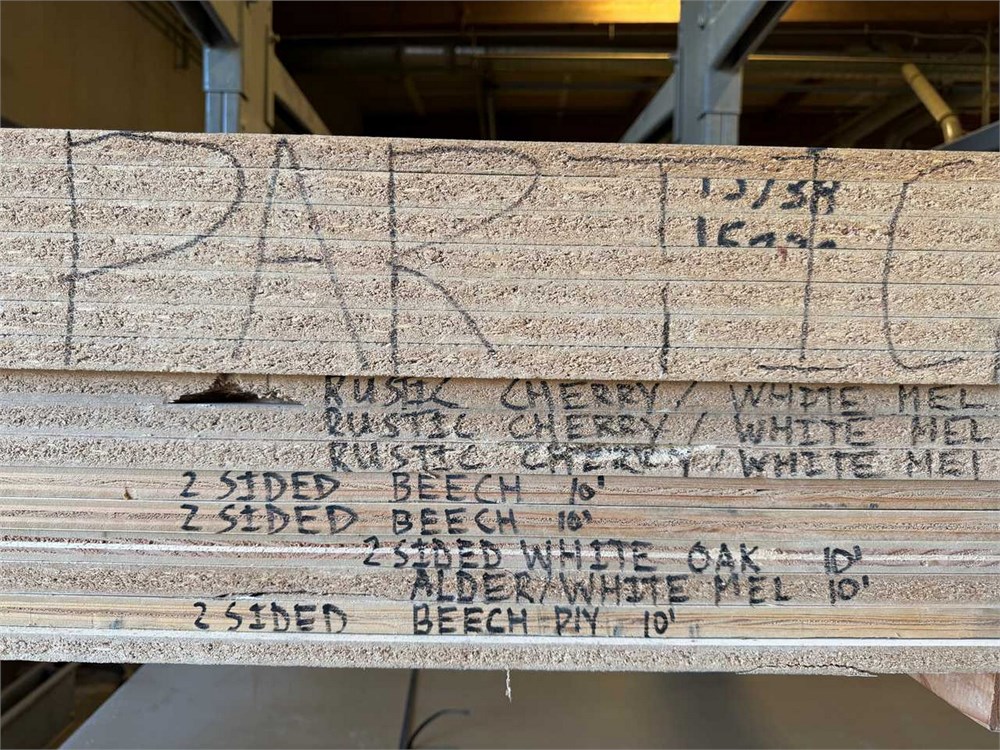 PARTIC
RUSTIC CHERRY/ WHITE MEL
RUSTIC CHERRY/ WHITE MEL
RUSTIC CHERRY/ WHITE MEL
2 SIDED BEECH 10'
2 SIDED BEECH 10'
2 SIDED WHITE OAK 10'
ALDER/WHITE MEL 10'
2 SIDED BEECH PLY 10'